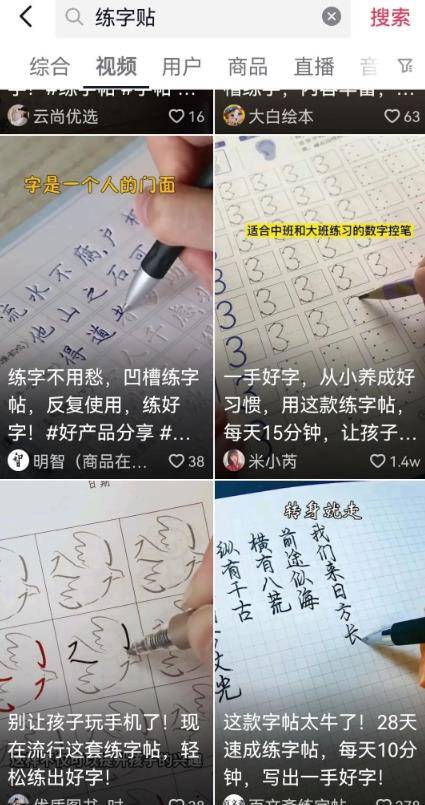 练字贴
搜索
综合
视频
用户
商品
直播
音
云尚优选
16
大白绘本
63
字是一个人的门面
流水不腐户
他山之石可
得道者
练字不用愁，凹槽练字
帖，反复使用，练好
字！#好产品分享 #...
明智（商品在...
38
适合中班和大班练习的数字控笔
3
一手好字，从小养成好
习惯，用这款练字帖，
每天15分钟，让孩子...
米小芮
1.4w
日期
别让孩子玩手机了！现
在流行这套练字帖，轻
松练出好字！
38
转身就走
我们来日方长
前途似海
横有八荒
纵有千古
这款字帖太牛了！28天
速成练字帖，每天10分
钟，写出一手好字！
278